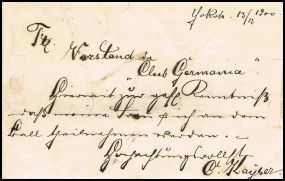 Yokoh. 13/12 1900
Tit.
Vorstand des
"Club Germania".
Hiermit zur gefl. Kenntniß
daß meine Frau & ich an dem
Ball theilnehmen werden. —
Hochachtungsvollst
C. Kayser.